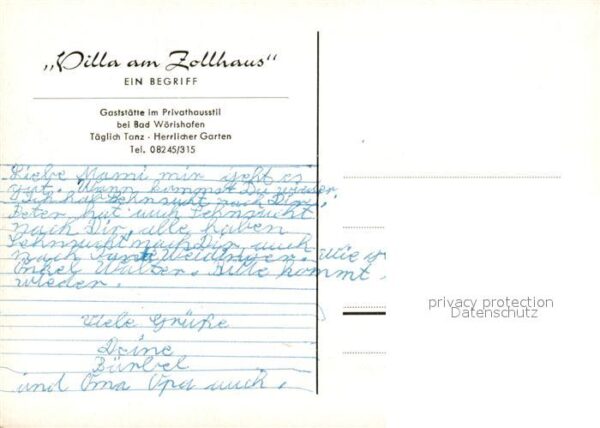 „Villa am Zollhaus“
EIN BEGRIFF
Gaststätte im Privathausstil
bei Bad Wörishofen
Täglich Tanz - Herrlicher Garten
Tel. 08245/315
Liebe Mami mir geht es
gut. Wann kommst Du wieder
Ich hab Sehnsucht nach Dir.
Peter hat auch Sehnsucht
nach Dir, alle haben
Sehnsucht nach Dir auch
nach Tante Weidinger. Wie
Onkel Walter. Bitte kommt
wieder.
Viele Grüße
Deine
Bärbel
und Oma Opa auch.
privacy protection
Datenschutz